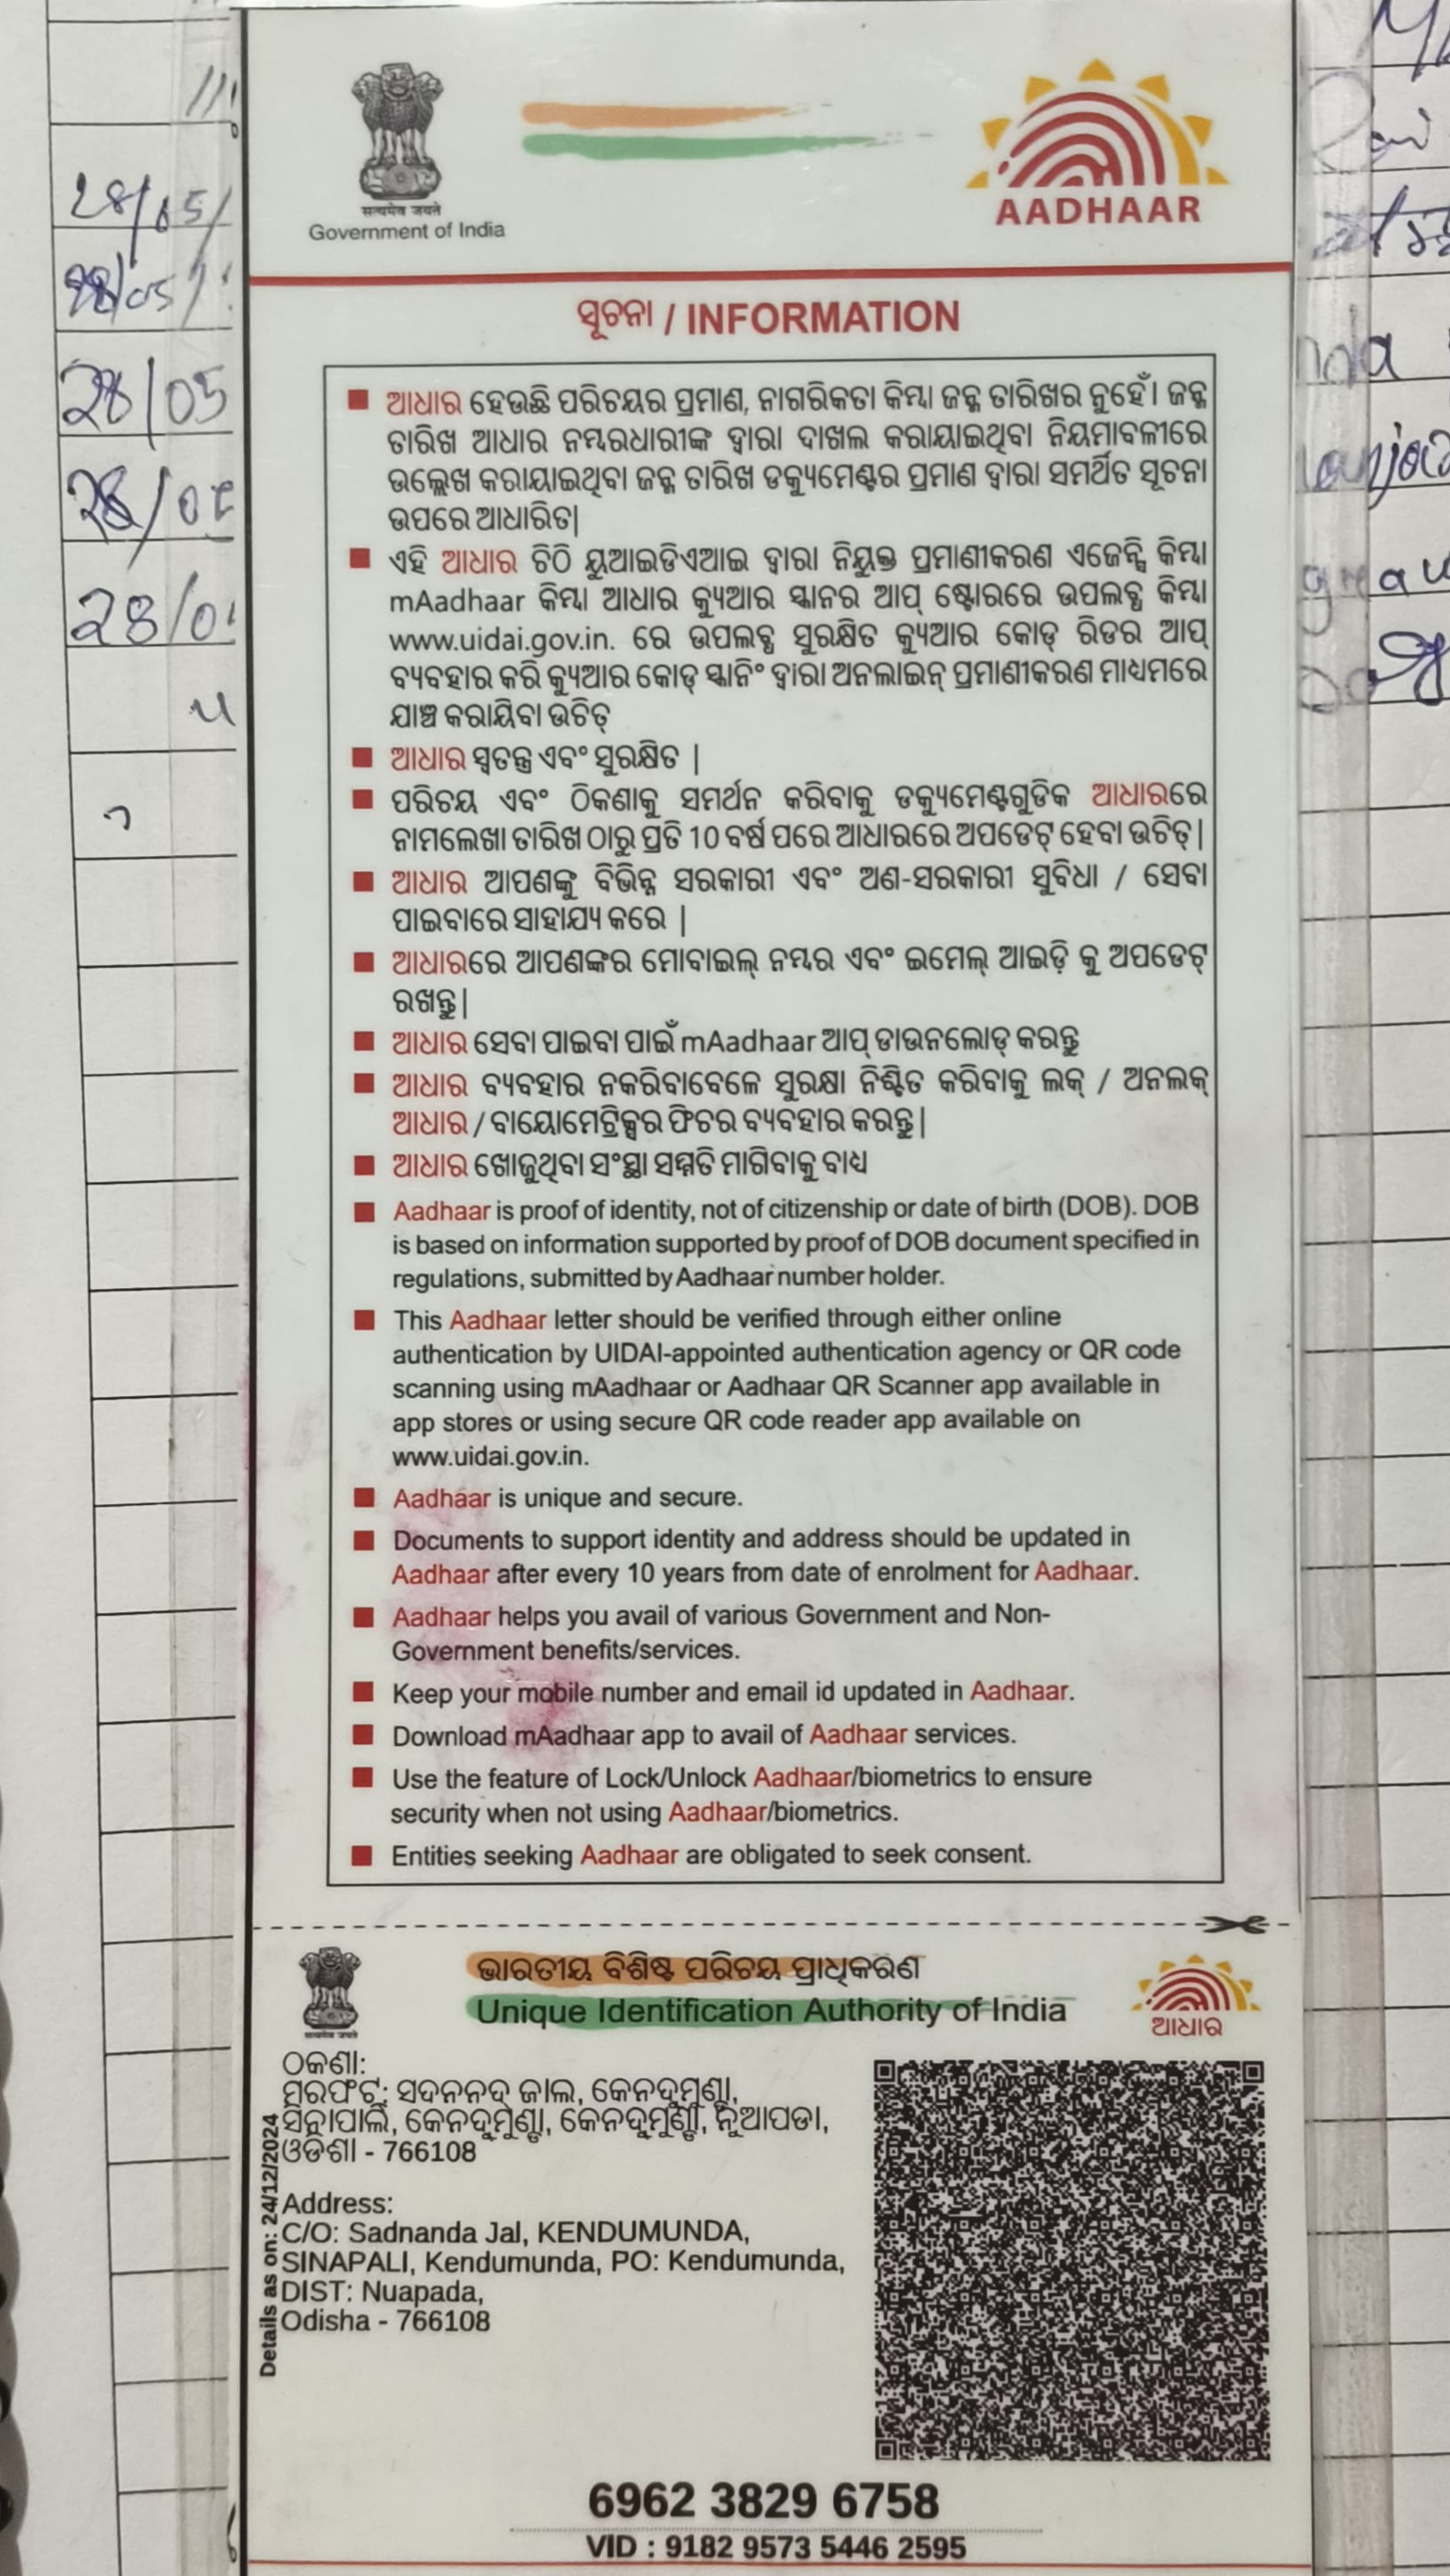 सत्यमेव जयते
Government of India
AADHAAR
ସୂଚନା / INFORMATION
ଆଧାର ହେଉଛି ପରିଚୟର ପ୍ରମାଣ, ନାଗରିକତା କିମ୍ବା ଜନ୍ମ ତାରିଖର ନୁହେଁ। ଜନ୍ମ
ତାରିଖ ଆଧାର ନମ୍ବରଧାରୀଙ୍କ ଦ୍ୱାରା ଦାଖଲ କରାୟାଇଥିବା ନିୟମାବଳୀରେ
ଉଲ୍ଲେଖ କରାୟାଇଥିବା ଜନ୍ମ ତାରିଖ ଡକ୍ୟୁମେଣ୍ଟର ପ୍ରମାଣ ଦ୍ୱାରା ସମର୍ଥିତ ସୂଚନା
ଉପରେ ଆଧାରିତ|
ଏହି ଆଧାର ଚିଠି ୟୁଆଇଡିଏଆଇ ଦ୍ୱାରା ନିୟୁକ୍ତ ପ୍ରମାଣୀକରଣ ଏଜେନ୍ସି କିମ୍ବା
mAadhaar କିମ୍ବା ଆଧାର କ୍ୟୁଆର ସ୍କାନର ଆପ୍ ଷ୍ଟୋରରେ ଉପଲବ୍ଧ କିମ୍ବା
www.uidai.gov.in. ରେ ଉପଲବ୍ଧ ସୁରକ୍ଷିତ କ୍ୟୁଆର କୋଡ୍ ରିଡର ଆପ୍
ବ୍ୟବହାର କରି କ୍ୟୁଆର କୋଡ୍ ସ୍କାନିଂ ଦ୍ୱାରା ଅନଲାଇନ୍ ପ୍ରମାଣୀକରଣ ମାଧ୍ୟମରେ
ଯାଞ୍ଚ କରାୟିବା ଉଚିତ୍
ଆଧାର ସ୍ୱତନ୍ତ୍ର ଏବଂ ସୁରକ୍ଷିତ |
ପରିଚୟ ଏବଂ ଠିକଣାକୁ ସମର୍ଥନ କରିବାକୁ ଡକ୍ୟୁମେଣ୍ଟଗୁଡିକ ଆଧାରରେ
ନାମଲେଖା ତାରିଖ ଠାରୁ ପ୍ରତି 10 ବର୍ଷ ପରେ ଆଧାରରେ ଅପଡେଟ୍ ହେବା ଉଚିତ୍|
ଆଧାର ଆପଣଙ୍କୁ ବିଭିନ୍ନ ସରକାରୀ ଏବଂ ଅଣ-ସରକାରୀ ସୁବିଧା / ସେବା
ପାଇବାରେ ସାହାଯ୍ୟ କରେ |
ଆଧାରରେ ଆପଣଙ୍କର ମୋବାଇଲ୍ ନମ୍ବର ଏବଂ ଇମେଲ୍ ଆଇଡ଼ି କୁ ଅପଡେଟ୍
ରଖନ୍ତୁ|
ଆଧାର ସେବା ପାଇବା ପାଇଁ mAadhaar ଆପ୍ ଡାଉନଲୋଡ୍ କରନ୍ତୁ
ଆଧାର ବ୍ୟବହାର ନକରିବାବେଳେ ସୁରକ୍ଷା ନିଶ୍ଚିତ କରିବାକୁ ଲକ୍ / ଅନଲକ୍
ଆଧାର / ବାୟୋମେଟ୍ରିକ୍ସର ଫିଚର ବ୍ୟବହାର କରନ୍ତୁ|
ଆଧାର ଖୋଜୁଥିବା ସଂସ୍ଥା ସମ୍ମତି ମାଗିବାକୁ ବାଧ୍ୟ
Aadhaar is proof of identity, not of citizenship or date of birth (DOB). DOB
is based on information supported by proof of DOB document specified in
regulations, submitted by Aadhaar number holder.
This Aadhaar letter should be verified through either online
authentication by UIDAI-appointed authentication agency or QR code
scanning using mAadhaar or Aadhaar QR Scanner app available in
app stores or using secure QR code reader app available on
www.uidai.gov.in.
Aadhaar is unique and secure.
Documents to support identity and address should be updated in
Aadhaar after every 10 years from date of enrolment for Aadhaar.
Aadhaar helps you avail of various Government and Non-
Government benefits/services.
Keep your mobile number and email id updated in Aadhaar.
Download mAadhaar app to avail of Aadhaar services.
Use the feature of Lock/Unlock Aadhaar/biometrics to ensure
security when not using Aadhaar/biometrics.
Entities seeking Aadhaar are obligated to seek consent.
ଭାରତୀୟ ବିଶିଷ୍ଟ ପରିଚୟ ପ୍ରାଧିକରଣ
Unique Identification Authority of India
ଆଧାର
ଠକଣା:
ମରଫଟ୍: ସଦନନଦ ଜାଲ, କେନଦୁମୁଣ୍ଡା,
ସିନାପାଲି, କେନଦୁମୁଣ୍ଡା, କେନଦୁମୁଣ୍ଡା, ନୁଆପଡା,
ଓଡିଶା - 766108
Address:
C/O: Sadnanda Jal, KENDUMUNDA,
SINAPALI, Kendumunda, PO: Kendumunda,
DIST: Nuapada,
Odisha - 766108
Details as on: 24/12/2024
6962 3829 6758
VID : 9182 9573 5446 2595
28/05/
28/05
28/0